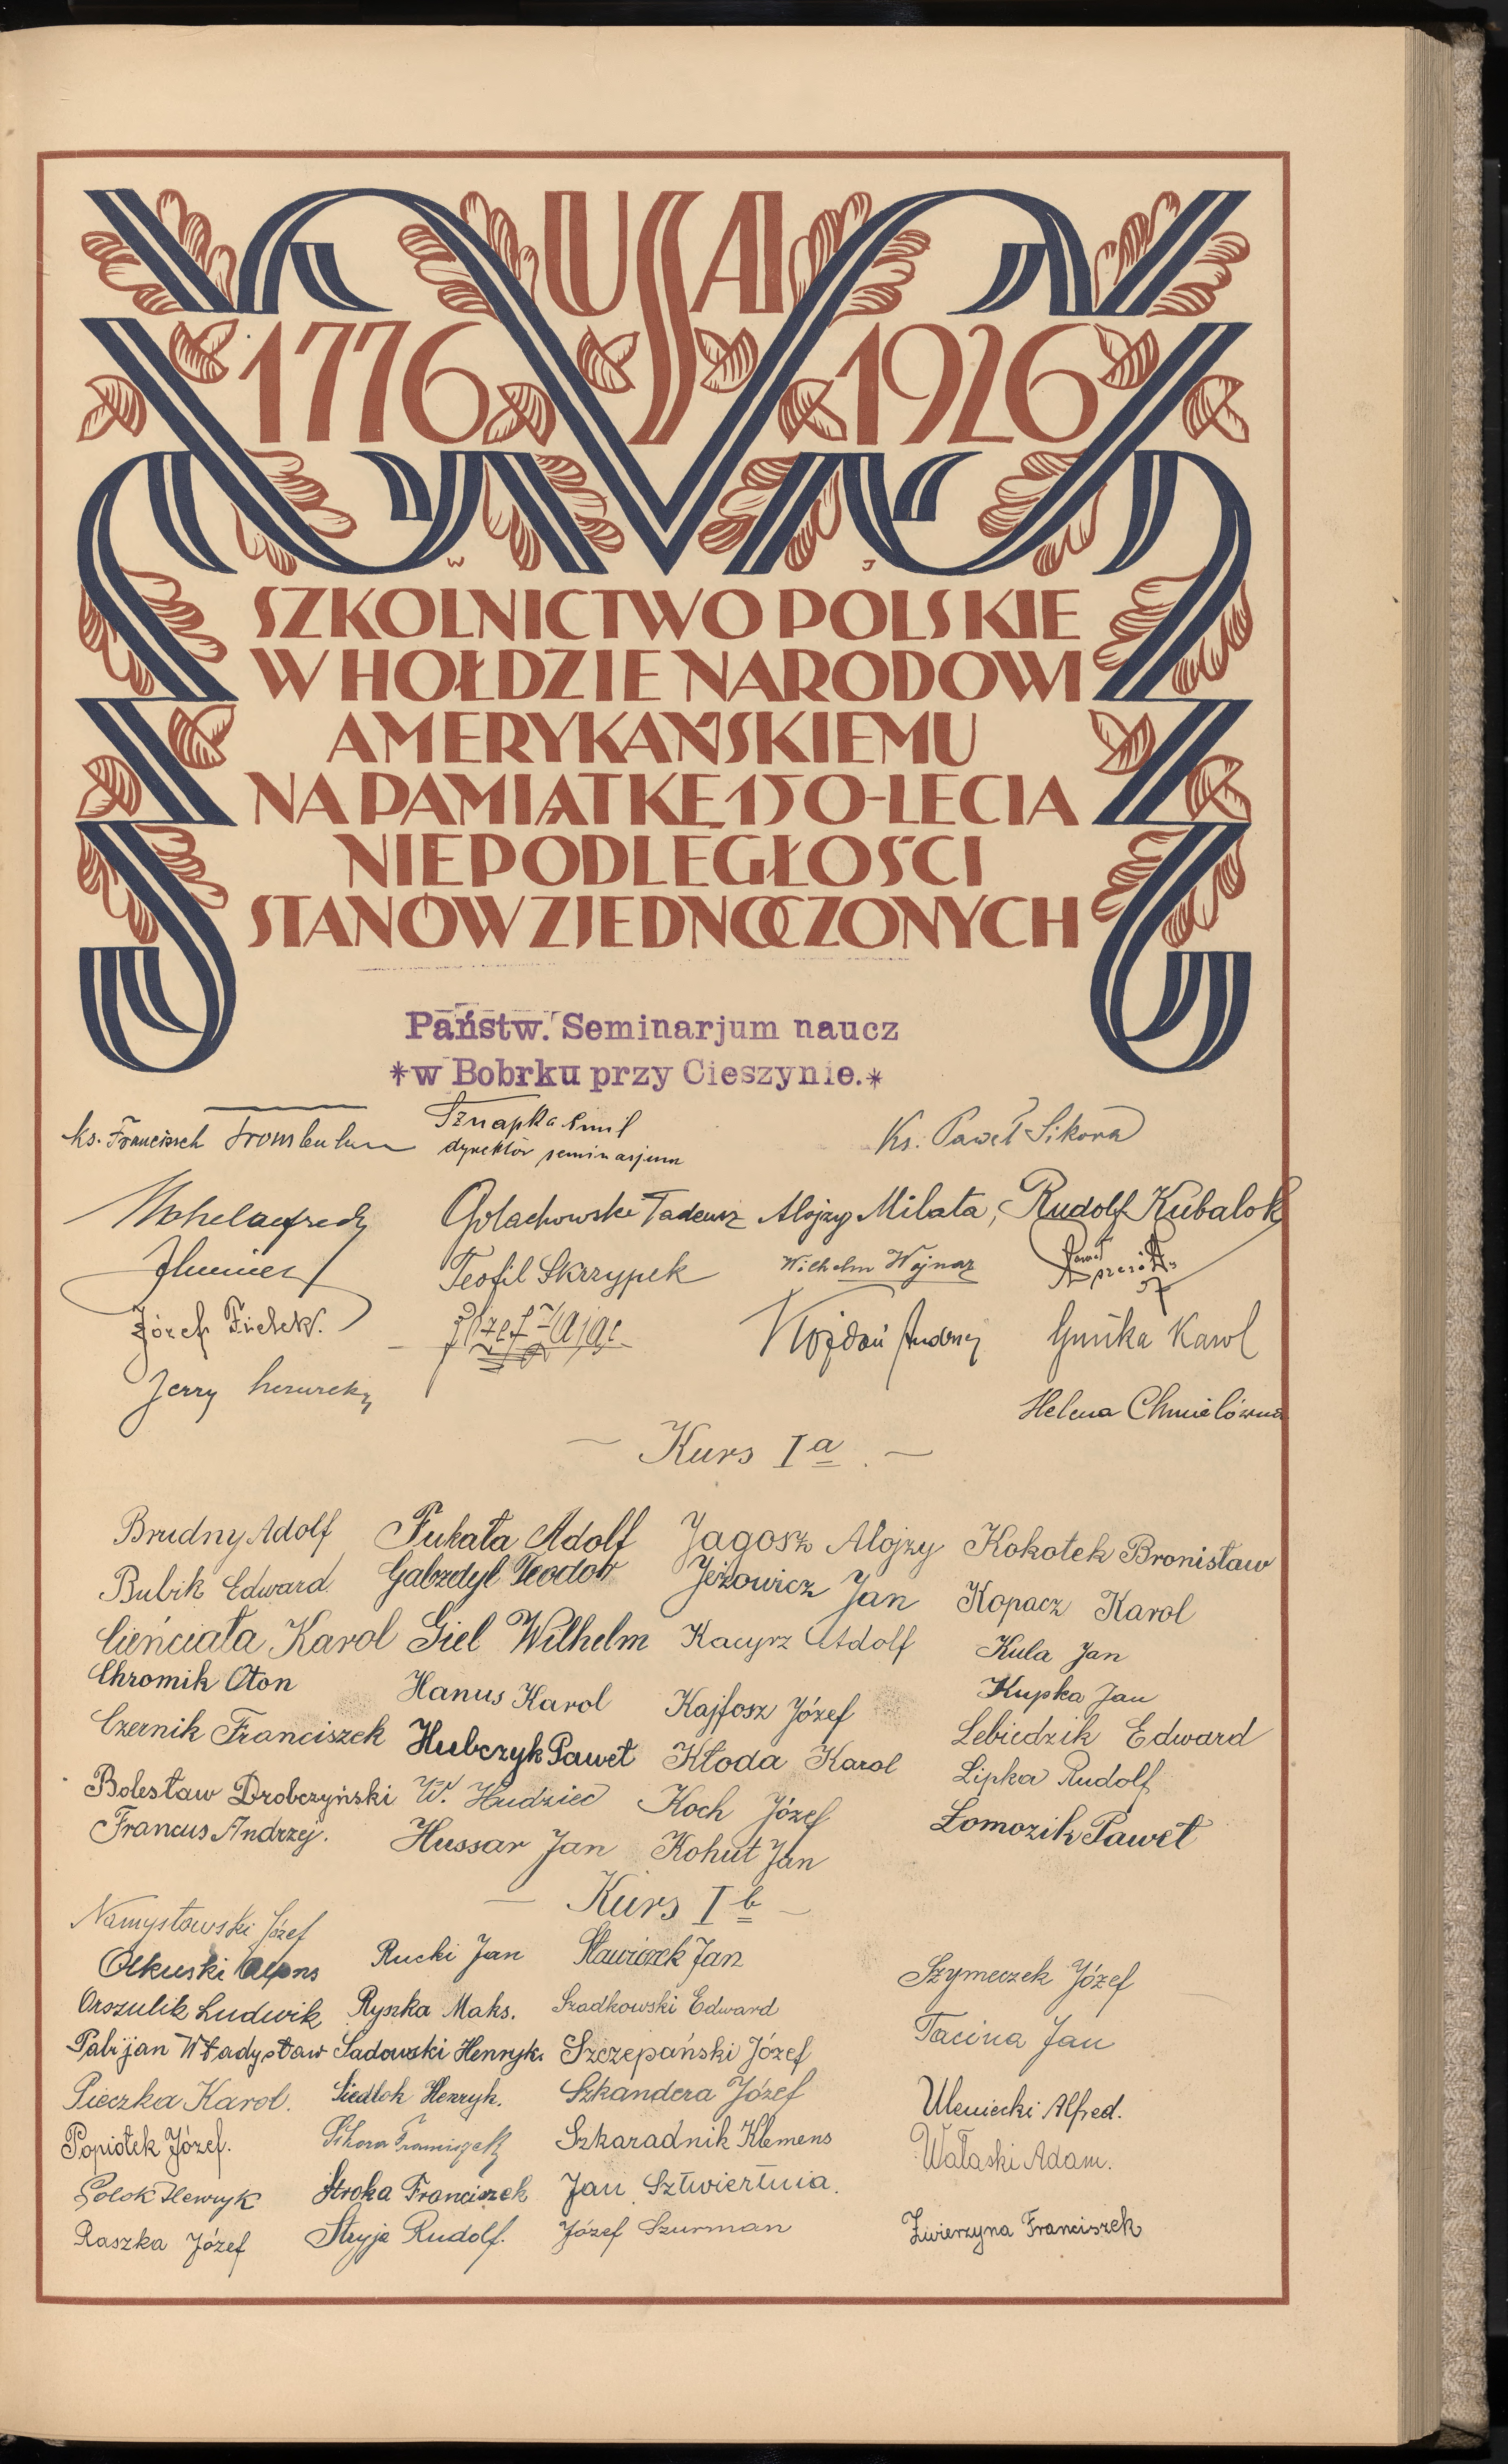 USA
1776 1926
W J
SZKOLNICTWO POLSKIE
W HOŁDZIE NARODOWI
AMERYKAŃSKIEMU
NA PAMIĄTKĘ 150-LECIA
NIEPODLEGŁOŚCI
STANÓW ZJEDNOCZONYCH
Państw. Seminarjum naucz
*w Bobrku przy Cieszynie.*
ks. Franciszek
Sznapka Emil
dyrektor seminarjum
Ks. Paweł Sikora
Gołachowski Tadeusz Alojzy Milata, Rudolf Kubalok
Teofil Skrzypek Wilhelm Wojnar Paweł
Józef Fielek. Józef Zając Kojdoń Andrzej Guńka Karol
Jerzy
Helena Chmielówna
Kurs I a
Brudny Adolf Fukała Adolf Jagosz Alojzy Kokotek Bronisław
Bubik Edward Gabzdyl Teodor Jeżowicz Jan Kopacz Karol
Cieńciała Karol Giel Wilhelm Kacyrz Adolf Kula Jan
Chromik Oton Hanus Karol Kajfosz Józef Kupka Jan
Czernik Franciszek Hubczyk Paweł Kłoda Karol Lebiedzik Edward
Bolesław Drobczyński W. Hudziec Koch Józef Lipka Rudolf
Francus Andrzej. Hussar Jan Kohut Jan Łomozik Paweł
Kurs I b
Namysłowski Józef
Olkuski Alfons Rucki Jan Sławiczek Jan Szymeczek Józef
Orszulik Ludwik Ryszka Maks. Szadkowski Edward Tacina Jan
Pabijan Władysław Sadowski Henryk. Szczepański Józef
Pieczka Karol. Siedlok Henryk. Szkandera Józef Uleniecki Alfred.
Popiołek Józef. Sikora Franciszek Szkaradnik Klemens Wałaski Adam.
Polok Henryk Stroka Franciszek Jan Sztwiertnia.
Raszka Józef Stryja Rudolf. Józef Szurman Zwierzyna Franciszek